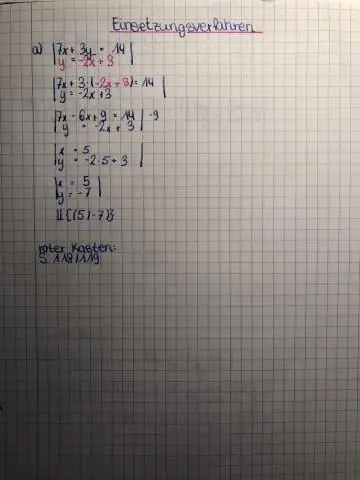 Einsetzungsverfahren
a) |7x + 3y = 14|
|y = -2x + 3|
|7x + 3·(-2x + 3) = 14|
|y = -2x + 3|
|7x - 6x + 9 = 14| -9
|y = -2x + 3|
|x = 5|
|y = -2·5 + 3|
|x = 5|
|y = -7|
𝕃{(5|-7)}
roter Kasten:
S. 118/119